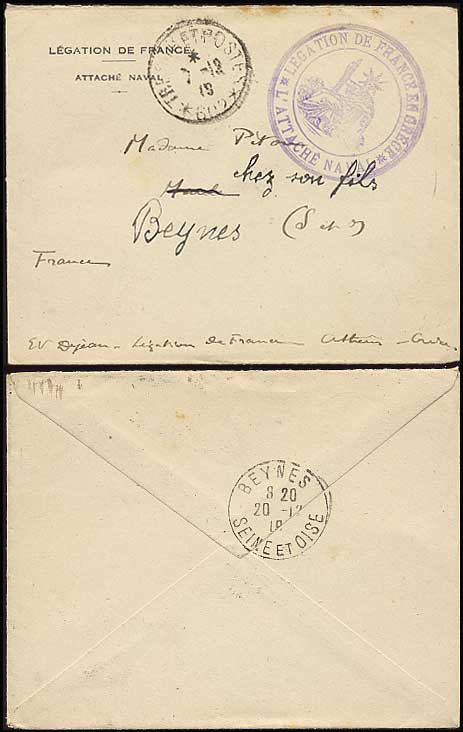 LÉGATION DE FRANCE
ATTACHÉ NAVAL
TRESOR ET POSTES
* 602 *
-12
LÉGATION DE FRANCE EN GRÈCE
* L'ATTACHÉ NAVAL *
Madame
chez son fils
Beynes (S et O)
France
EV Dejean - Légation de France Athènes - Grèce
BEYNES
8 20
20 -12
SEINE ET OISE